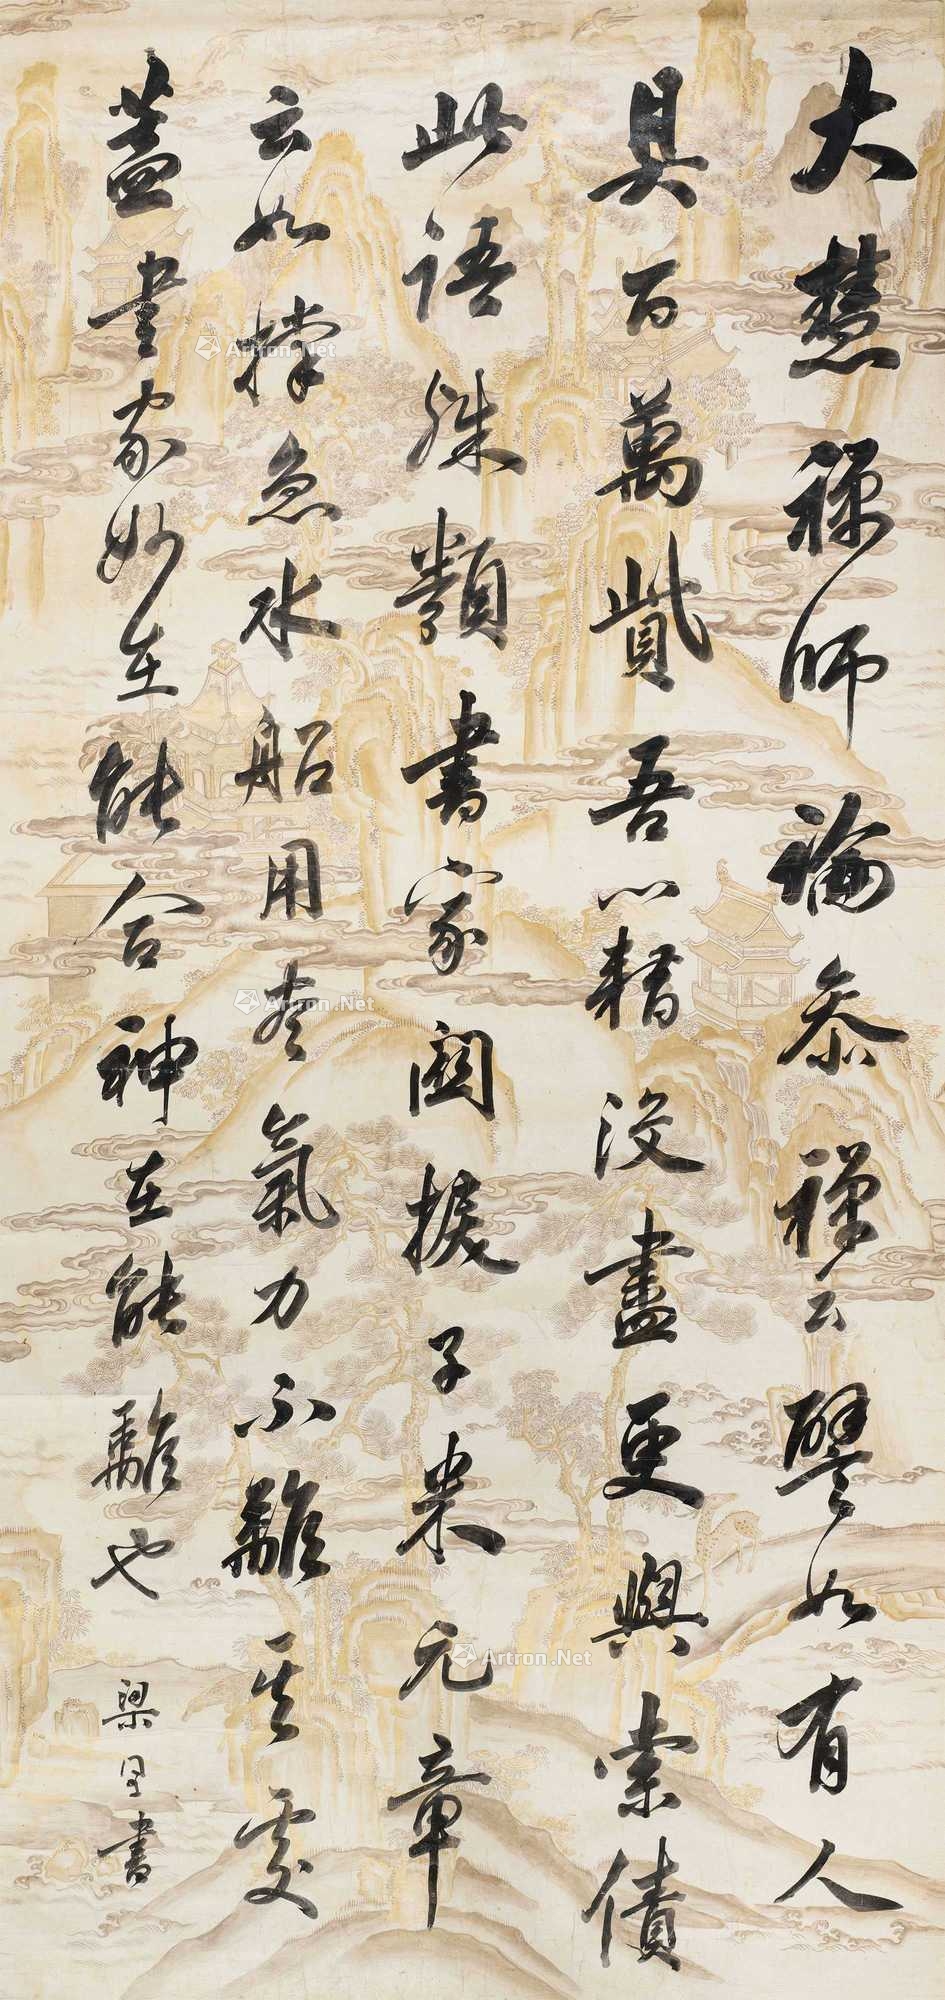 大慧禪師論參禪云譬如有人
具百萬貲吾皆籍沒盡更與索債
此語殊類書家關捩子米元章
云如撐急水船用盡氣力不離其處
蓋書家妙在能合神在能離也
梁書
Artron.Net
Artron.Net
Artron.Net
Artron.Net